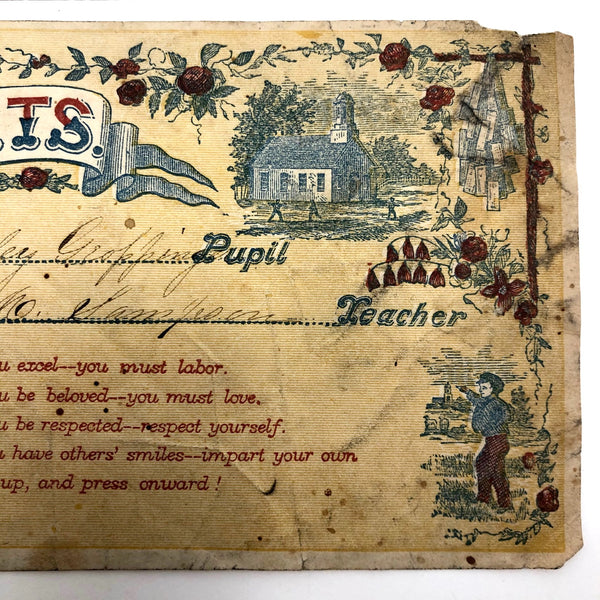 TS.
Pupil
Sampson Teacher
u excel--you must labor.
u be beloved--you must love.
u be respected--respect yourself.
have others' smiles--impart your own
up, and press onward!